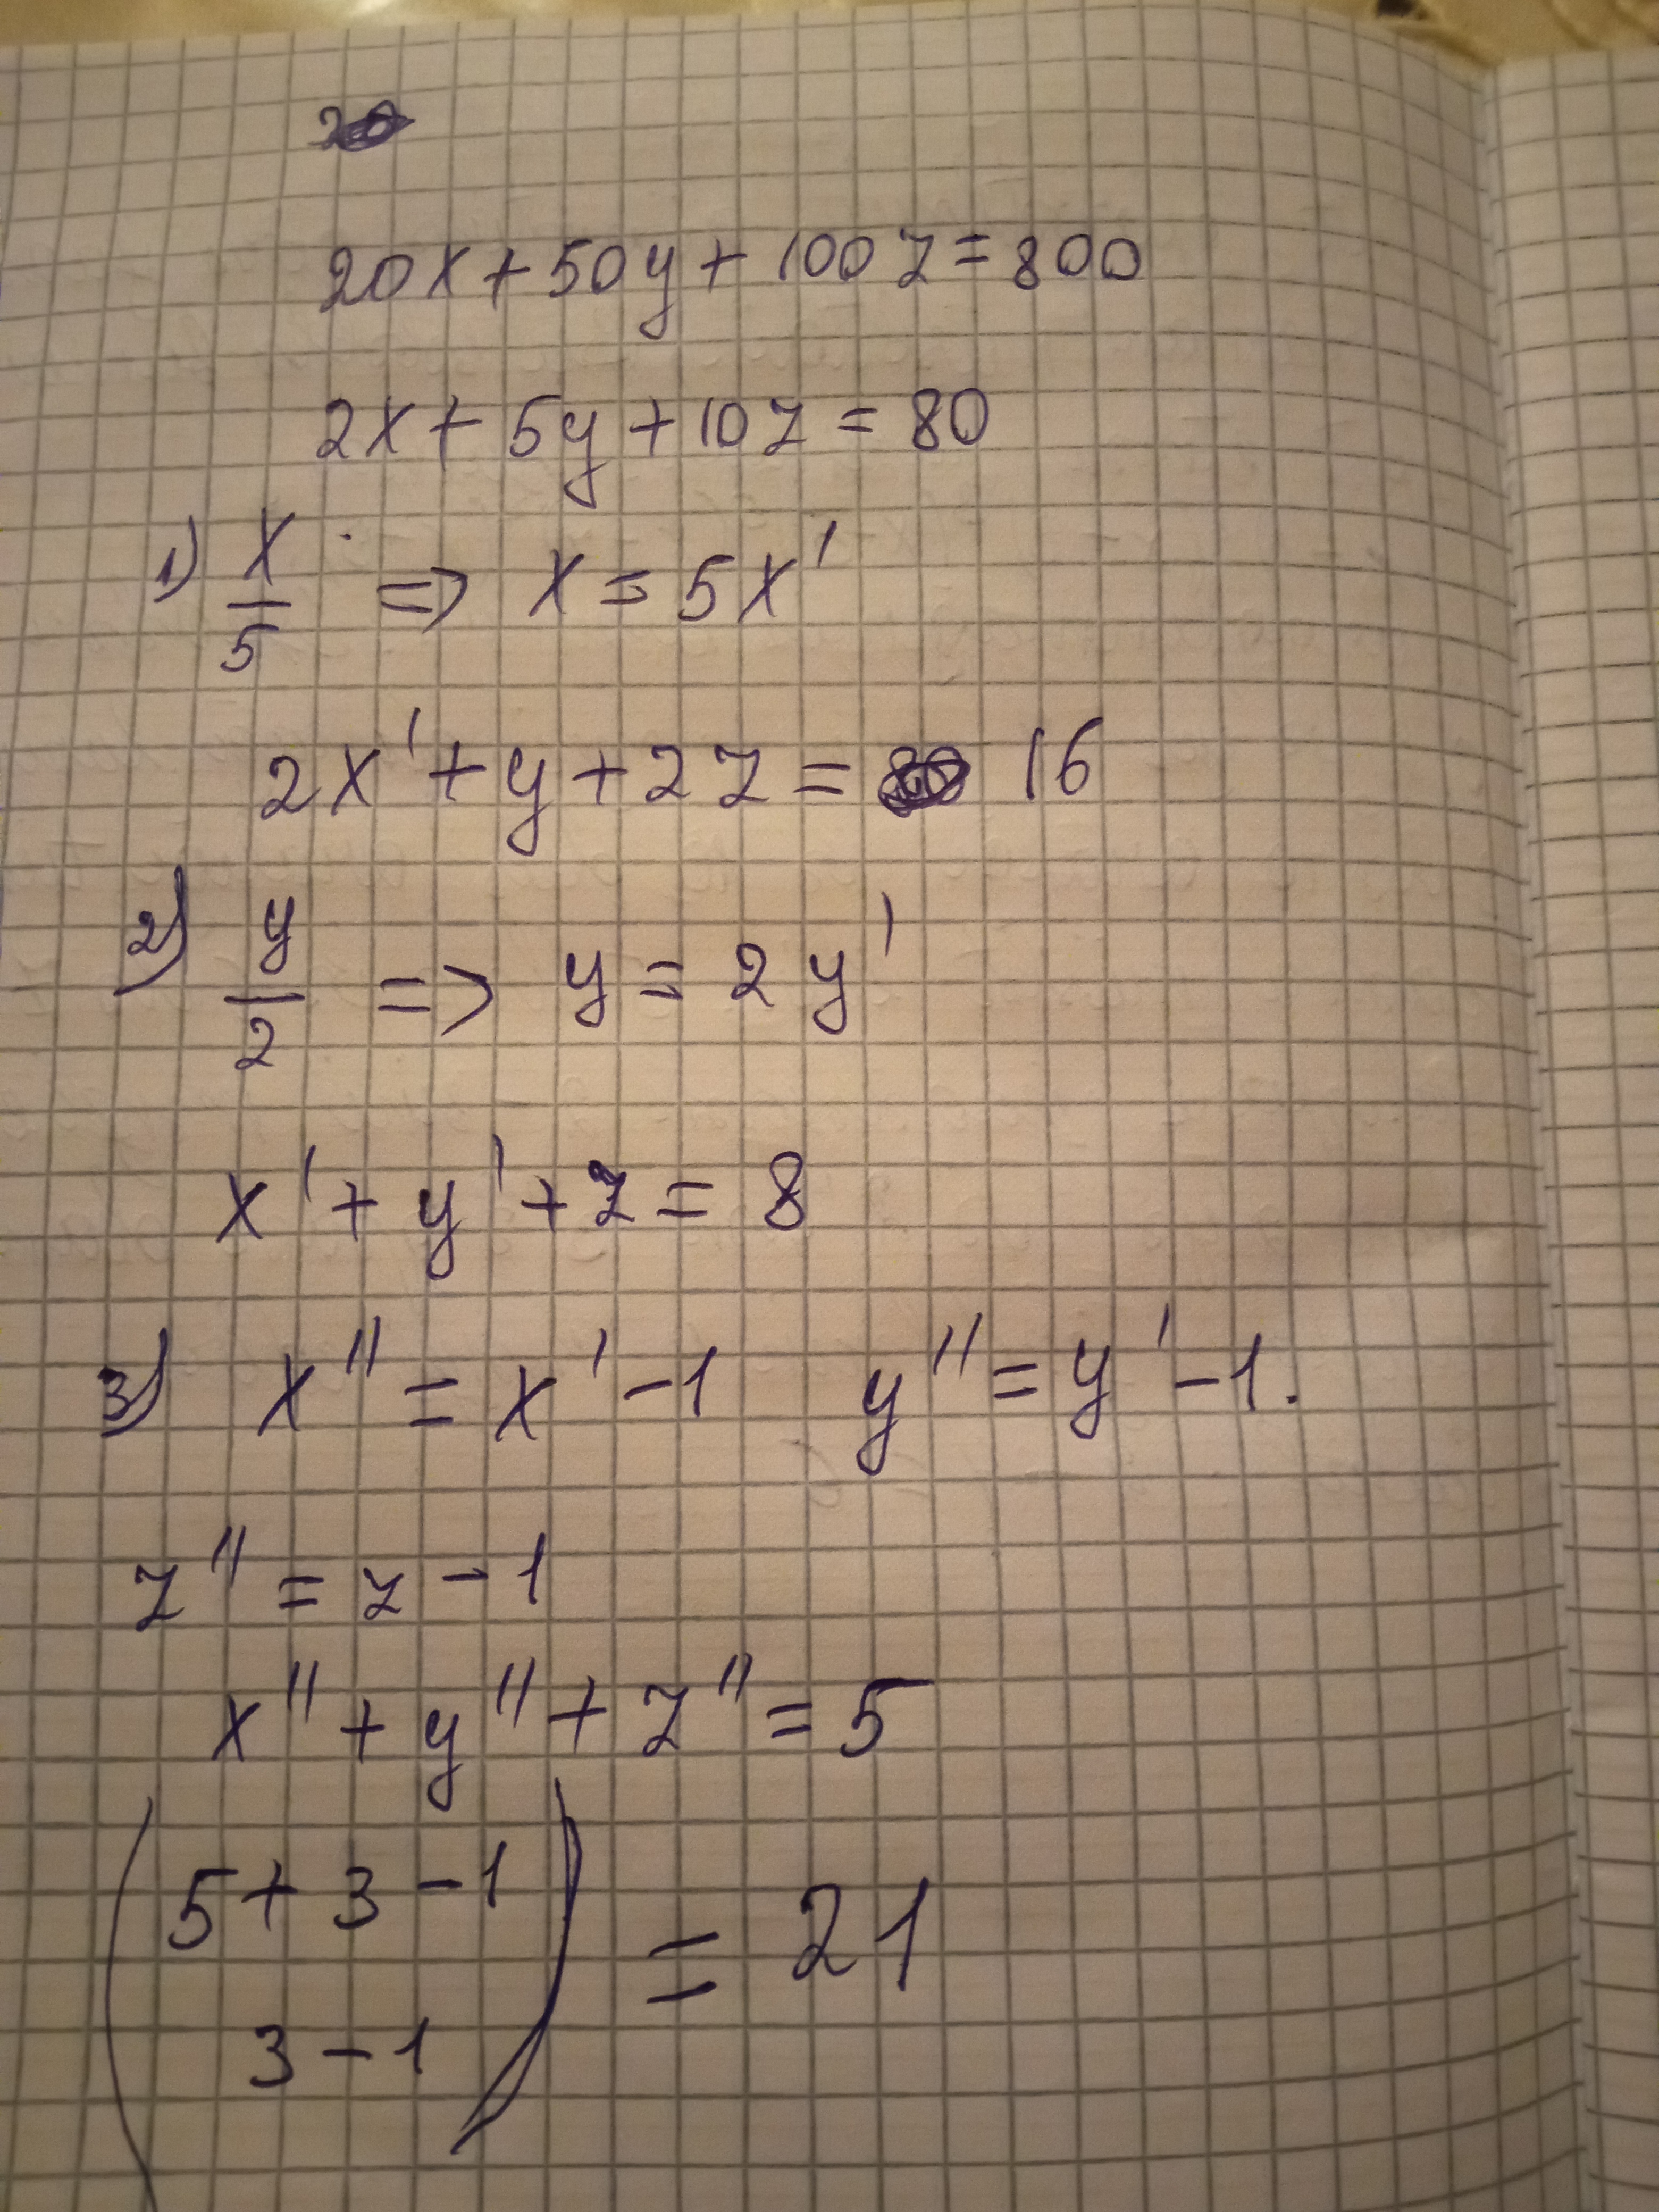 20x + 50y + 100z = 800
2x + 5y + 10z = 80
1) x/5 => x = 5x'
2x' + y + 2z = 16
2) y/2 => y = 2y'
x' + y' + z = 8
3) x'' = x' - 1 y'' = y' - 1.
z'' = z - 1
x'' + y'' + z'' = 5
(5 + 3 - 1
3 - 1) = 21